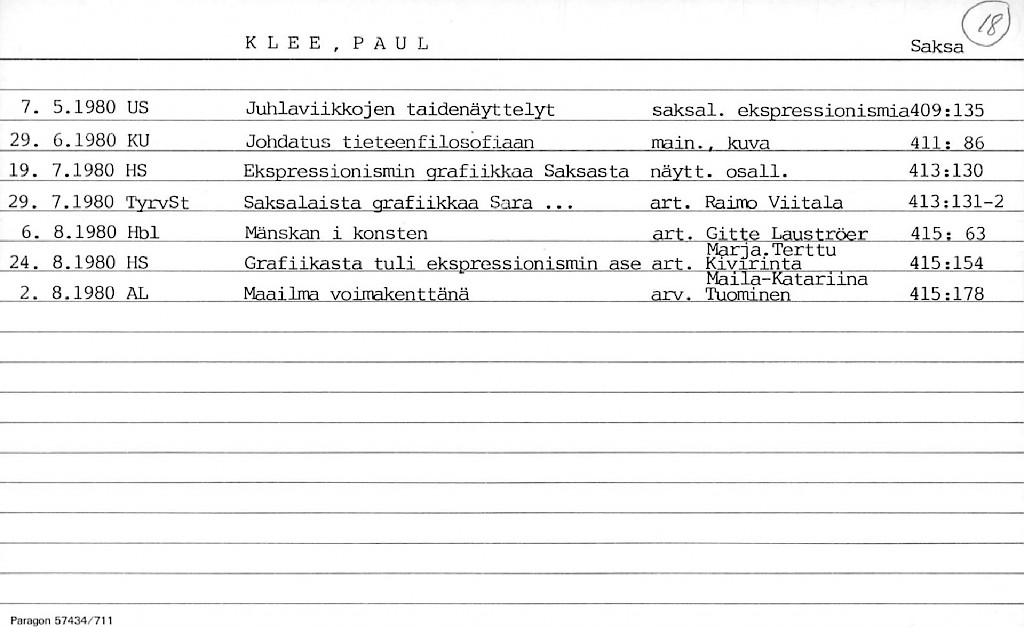 18
KLEE, PAUL Saksa
7. 5.1980 US Juhlaviikkojen taidenäyttelyt saksal. ekspressionismia409:135
29. 6.1980 KU Johdatus tieteenfilosofiaan main., kuva 411: 86
19. 7.1980 HS Ekspressionismin grafiikkaa Saksasta näytt. osall. 413:130
29. 7.1980 TyrvSt Saksalaista grafiikkaa Sara ... art. Raimo Viitala 413:131-2
6. 8.1980 Hbl Mänskan i konsten art. Gitte Lauströer 415: 63
Marja.Terttu
24. 8.1980 HS Grafiikasta tuli ekspressionismin ase art. Kivirinta 415:154
Maila-Katariina
2. 8.1980 AL Maailma voimakenttänä arv. Tuominen 415:178
Paragon 57434/711